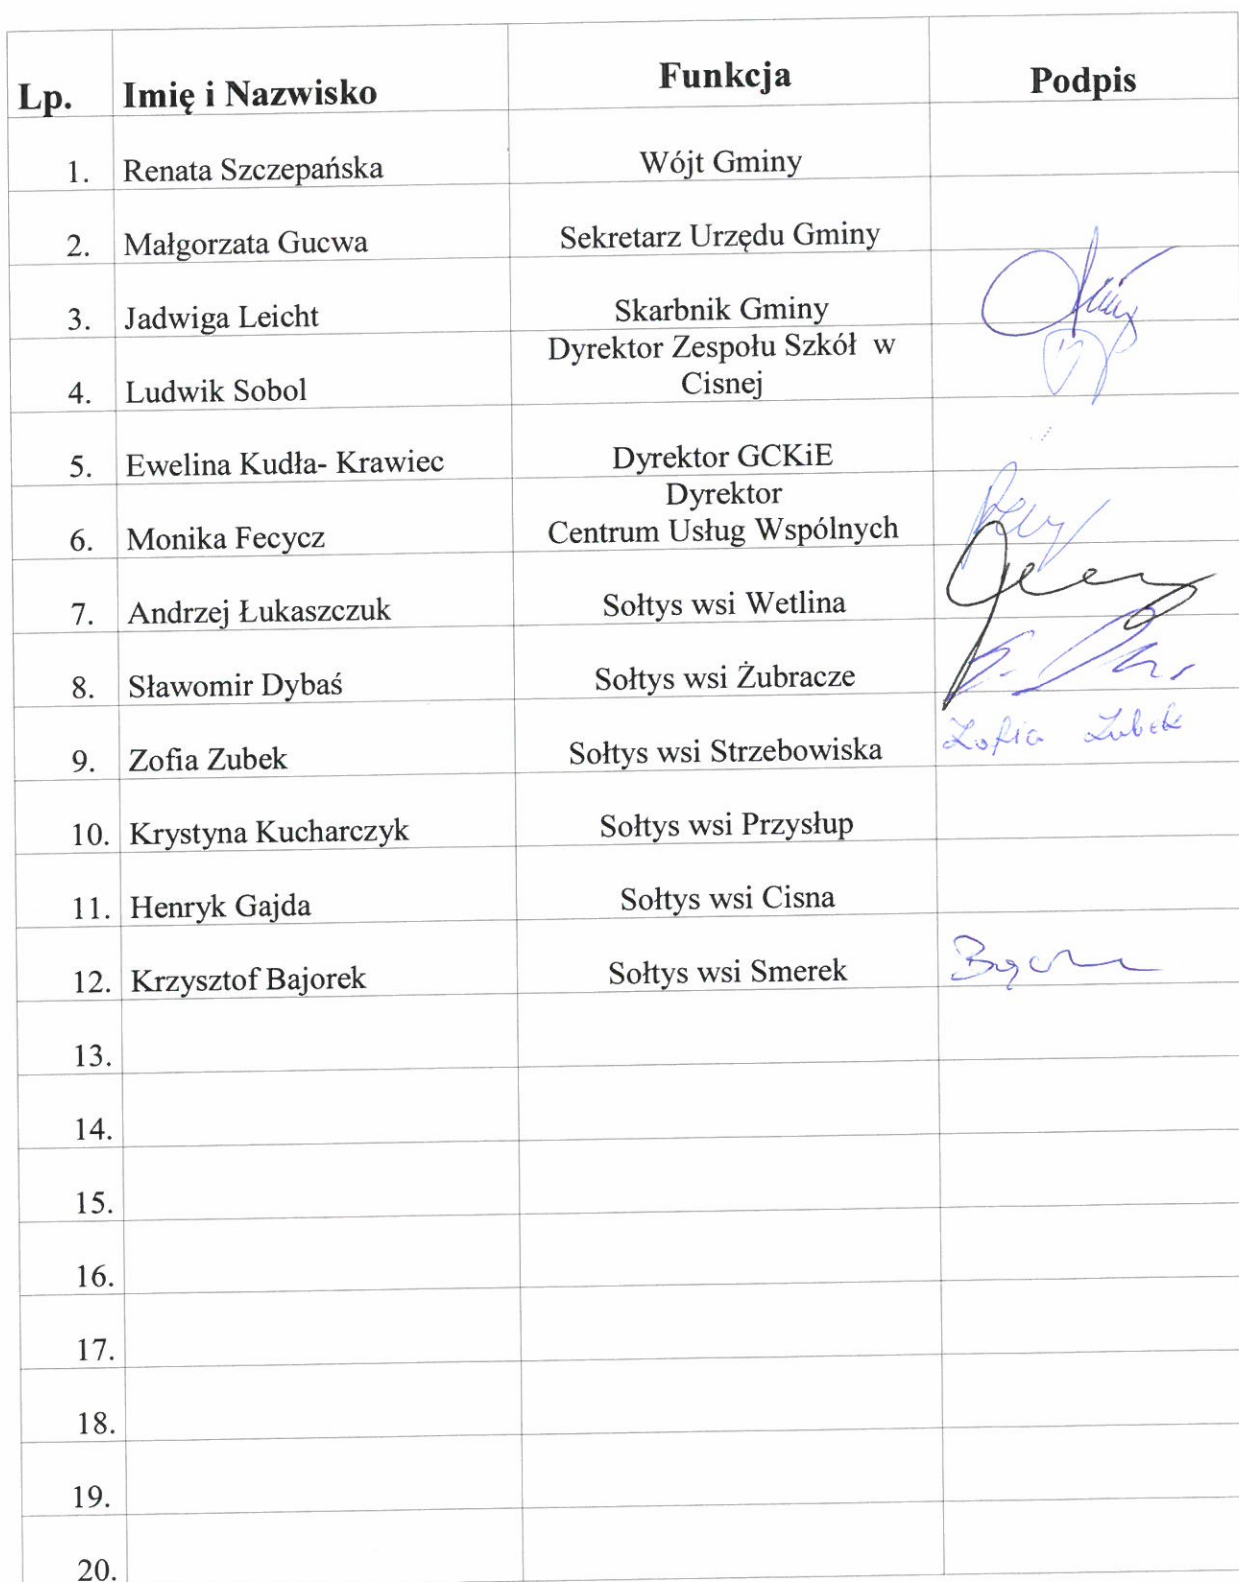 Lp. Imię i Nazwisko Funkcja Podpis
1. Renata Szczepańska Wójt Gminy
2. Małgorzata Gucwa Sekretarz Urzędu Gminy
3. Jadwiga Leicht Skarbnik Gminy
Dyrektor Zespołu Szkół w
4. Ludwik Sobol Cisnej
5. Ewelina Kudła- Krawiec Dyrektor GCKiE
Dyrektor
6. Monika Fecycz Centrum Usług Wspólnych
7. Andrzej Łukaszczuk Sołtys wsi Wetlina
8. Sławomir Dybaś Sołtys wsi Żubracze
9. Zofia Zubek Sołtys wsi Strzebowiska Zofia Zubek
10. Krystyna Kucharczyk Sołtys wsi Przysłup
11. Henryk Gajda Sołtys wsi Cisna
12. Krzysztof Bajorek Sołtys wsi Smerek
13.
14.
15.
16.
17.
18.
19.
20.